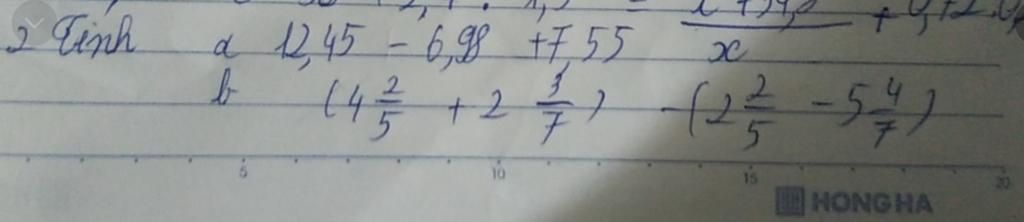 2 Tính a 12,45 - 6,98 + 7,55
b (4 2/5 + 2 3/7) - (2 2/5 - 5 4/7)
5 10 15 20
HONG HA